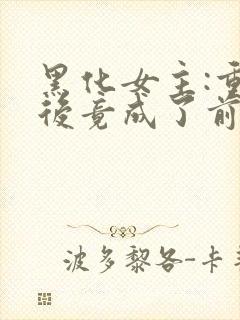 黑化女主:重
後竟成了前
波多黎各-卡